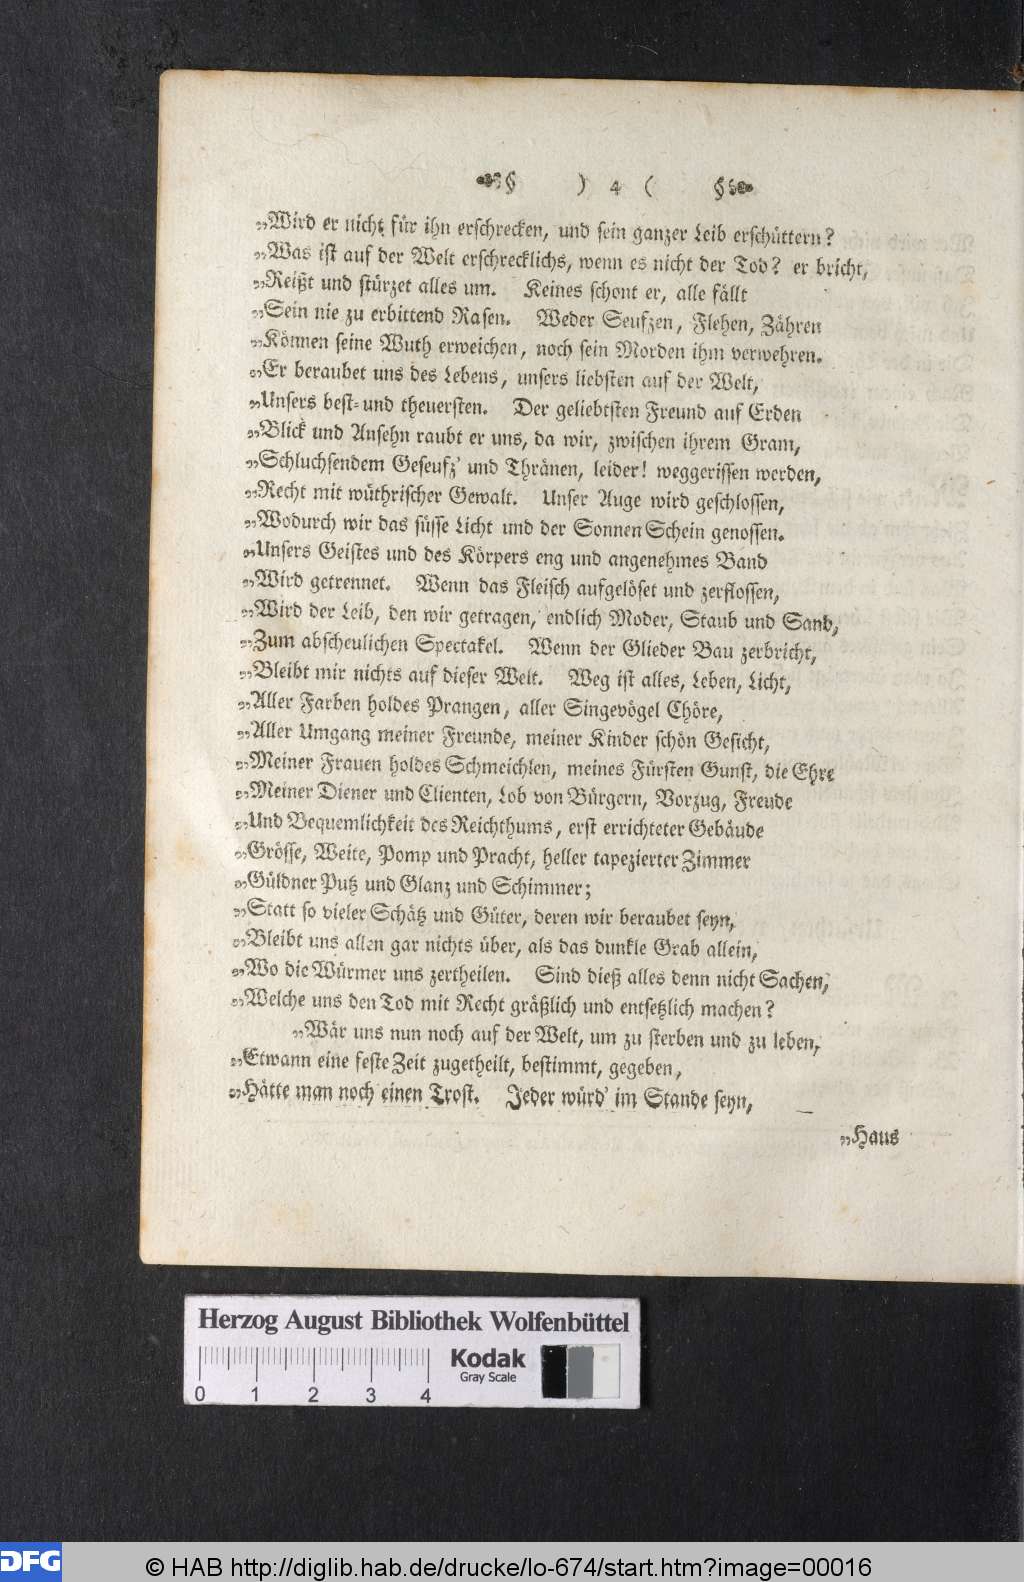 ) 4 (
„Wird er nicht für ihn erschrecken, und sein ganzer Leib erschüttern?
„Was ist auf der Welt erschrecklichs, wenn es nicht der Tod? er bricht,
„Reißt und stürzet alles um. Keines schont er, alle fällt
„Sein nie zu erbittend Rasen. Weder Seufzen, Flehen, Zähren
„Können seine Wuth erweichen, noch sein Morden ihm verwehren.
„Er beraubet uns des Lebens, unsers liebsten auf der Welt,
„Unsers best- und theuersten. Der geliebtsten Freund auf Erden
„Blick und Ansehn raubt er uns, da wir, zwischen ihrem Gram,
„Schluchsendem Geseufz' und Thränen, leider! weggerissen werden,
„Recht mit wüthrischer Gewalt. Unser Auge wird geschlossen,
„Wodurch wir das süsse Licht und der Sonnen Schein genossen.
„Unsers Geistes und des Körpers eng und angenehmes Band
„Wird getrennet. Wenn das Fleisch aufgelöset und zerflossen,
„Wird der Leib, den wir getragen, endlich Moder, Staub und Sand,
„Zum abscheulichen Spectakel. Wenn der Glieder Bau zerbricht,
„Bleibt mir nichts auf dieser Welt. Weg ist alles, Leben, Licht,
„Aller Farben holdes Prangen, aller Singevögel Chöre,
„Aller Umgang meiner Freunde, meiner Kinder schön Gesicht,
„Meiner Frauen holdes Schmeichlen, meines Fürsten Gunst, die Ehre
„Meiner Diener und Clienten, Lob von Bürgern, Vorzug, Freude
„Und Bequemlichkeit des Reichthums, erst errichteter Gebäude
„Grösse, Weite, Pomp und Pracht, heller tapezierter Zimmer
„Güldner Putz und Glanz und Schimmer;
„Statt so vieler Schätz und Güter, deren wir beraubet seyn,
„Bleibt uns allen gar nichts über, als das dunkle Grab allein,
„Wo die Würmer uns zertheilen. Sind dieß alles denn nicht Sachen,
„Welche uns den Tod mit Recht gräßlich und entsetzlich machen?
„Wär uns nun noch auf der Welt, um zu sterben und zu leben,
„Etwann eine feste Zeit zugetheilt, bestimmt, gegeben,
„Hätte man noch einen Trost. Jeder würd' im Stande seyn,
„Haus
Herzog August Bibliothek Wolfenbüttel
Kodak
Gray Scale
0 1 2 3 4
DFG
© HAB http://diglib.hab.de/drucke/lo-674/start.htm?image=00016